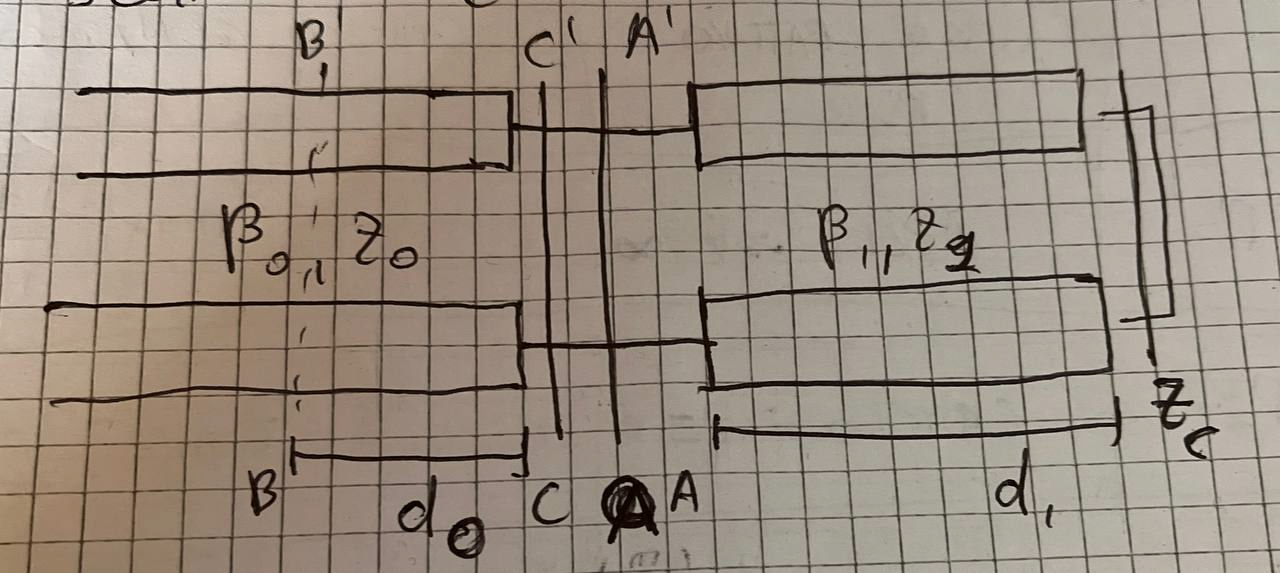 B' C' A'
β₀, Z₀ β₁, Z
Z_C
B d₀ C A d₁